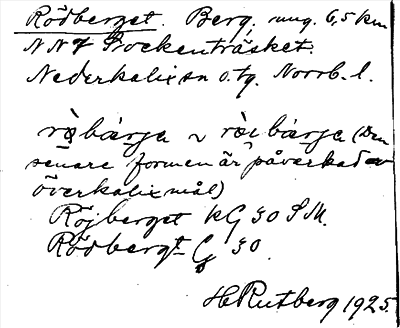 Rödberget. Berg, ung. 6,5 km
NNV Sockenträsket.
Nederkalix sn o. tg. Norrb. l.
rö̀bárja ~ rö̀ibárja (Den
senare formen är påverkad av
överkalixmål)
Röjberget kG 30 S M.
Rödbergt G 30.
H Rutberg 1925.